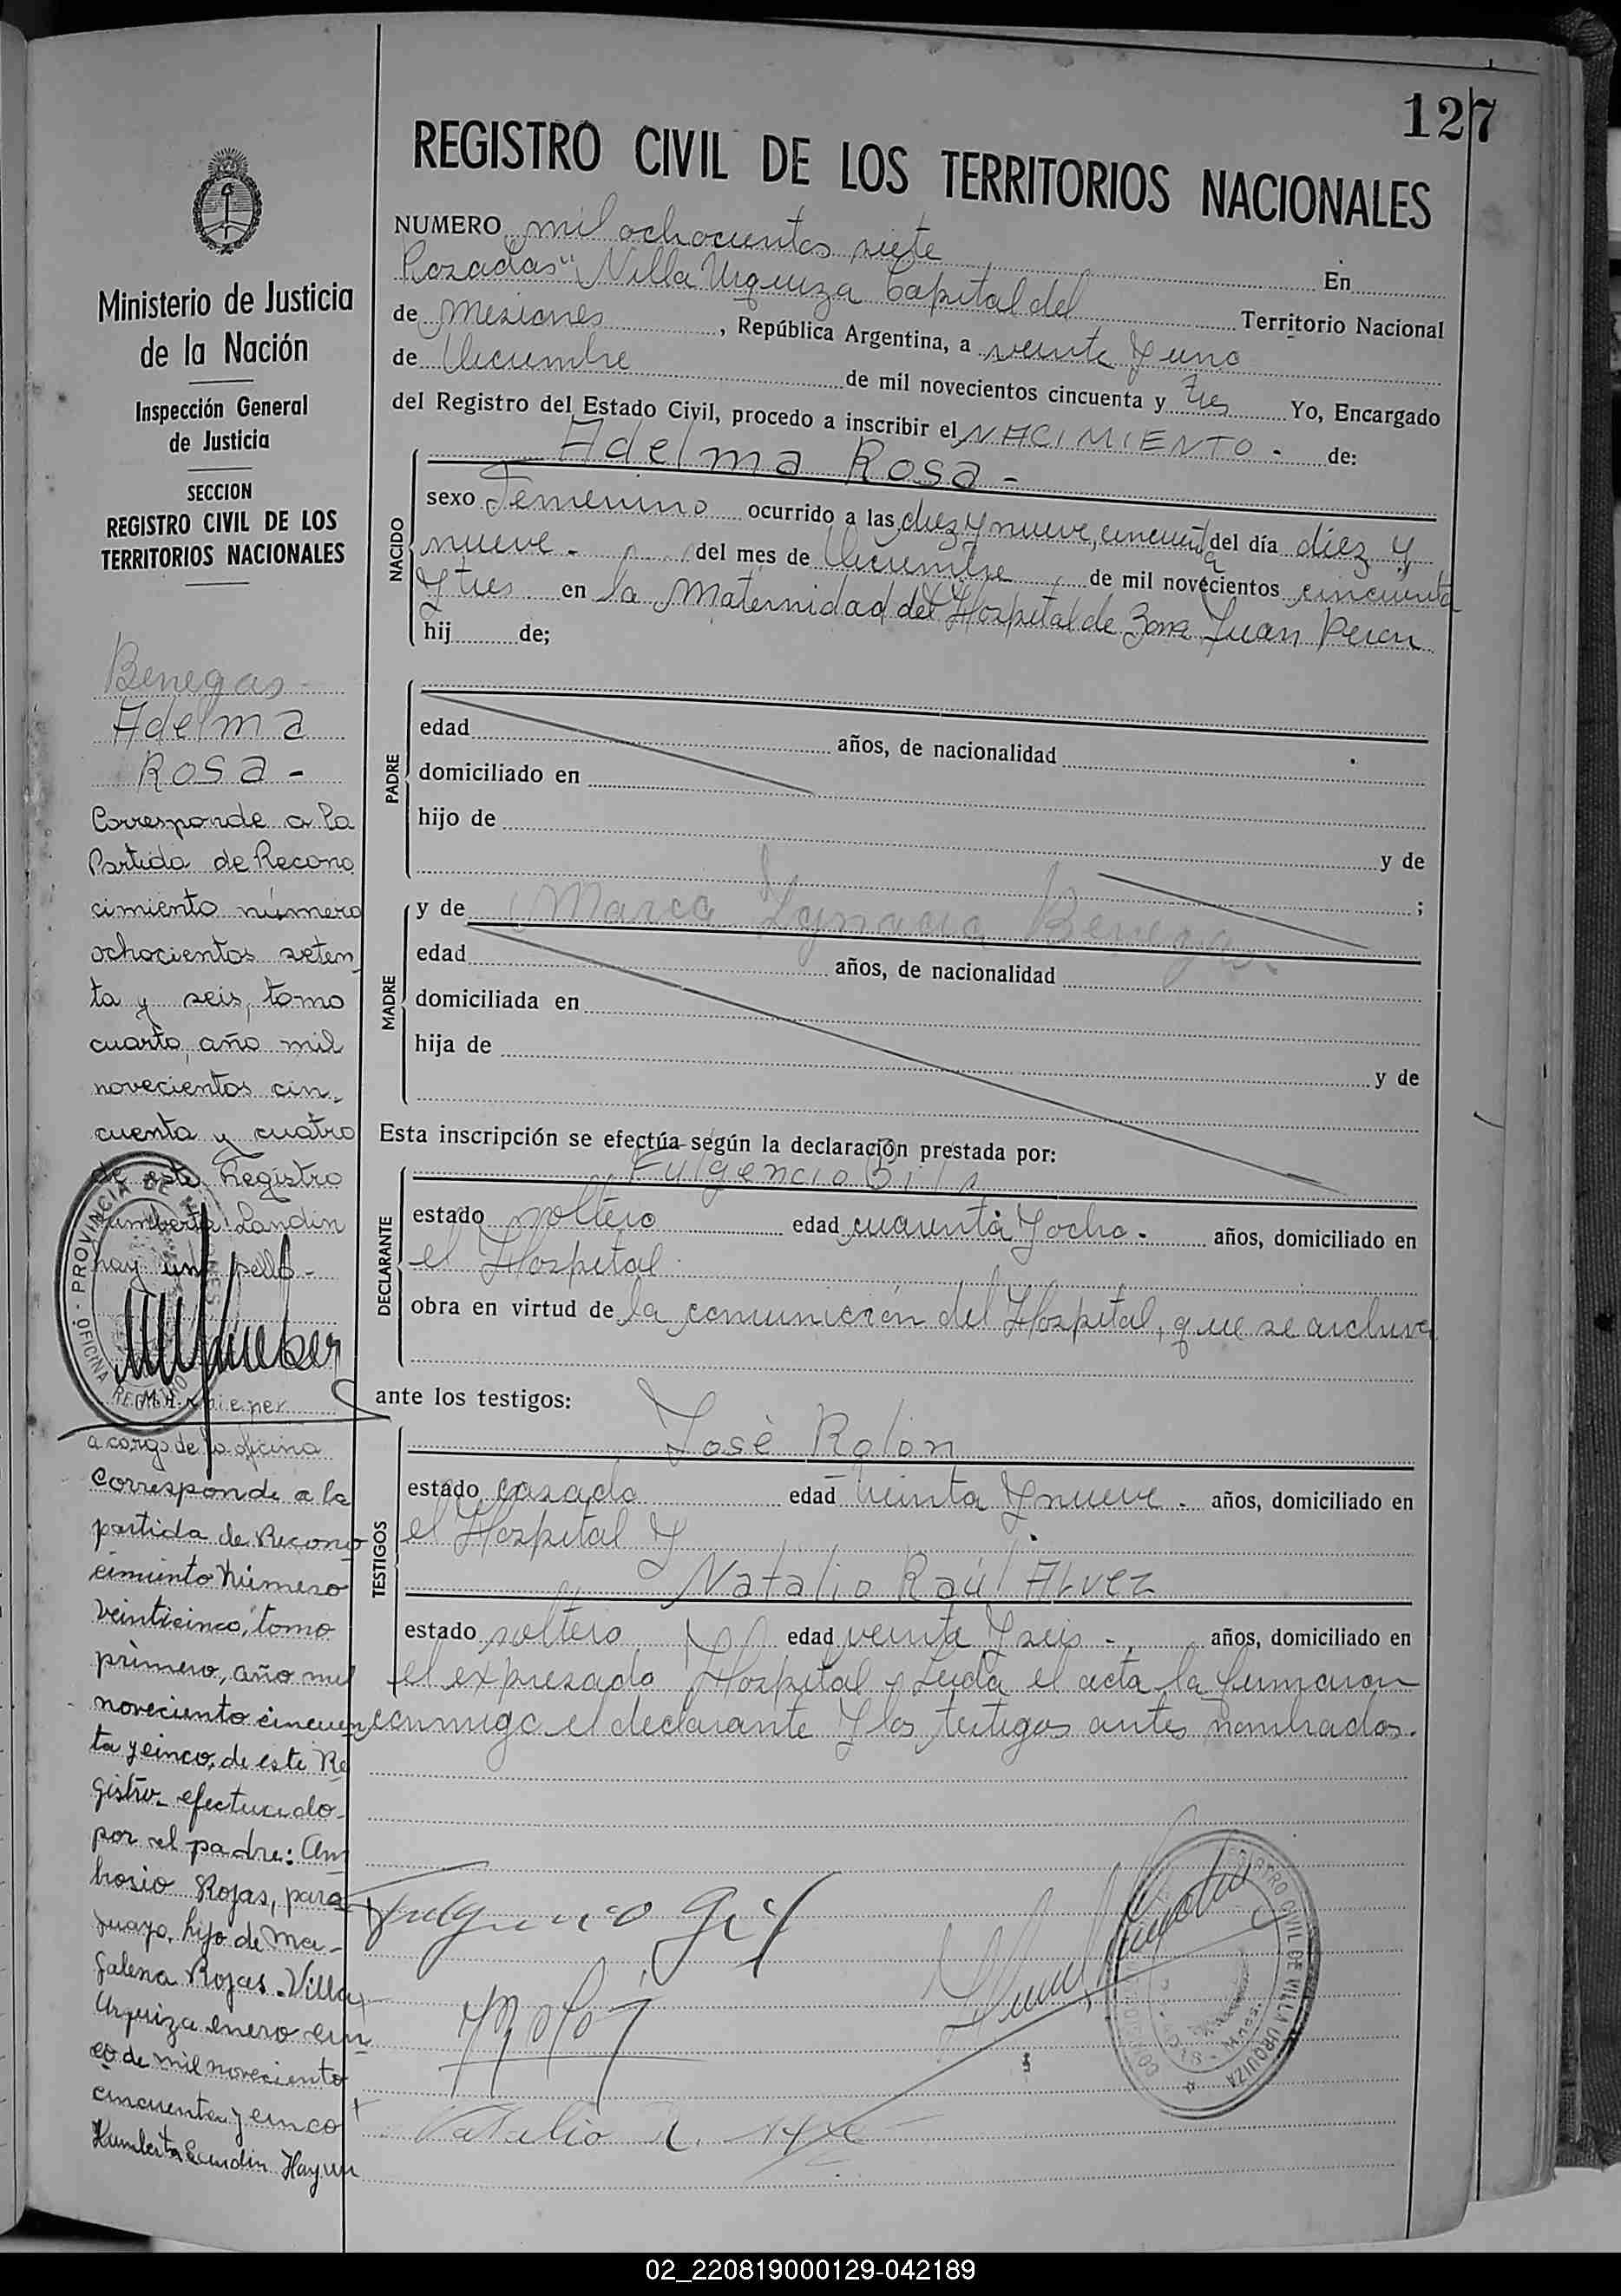 127
REGISTRO CIVIL DE LOS TERRITORIOS NACIONALES
NUMERO mil ochocientos siete En
Posadas "Villa Urquiza Capital del Territorio Nacional
de Misiones, República Argentina, a veinte y uno
de Diciembre de mil novecientos cincuenta y tres Yo, Encargado
del Registro del Estado Civil, procedo a inscribir el NACIMIENTO - de:
NACIDO
Adelma Rosa -
sexo Femenino ocurrido a las diez y nueve, cincuenta del día diez y
nueve - del mes de Diciembre de mil novecientos cincuenta
y tres en la Maternidad del Hospital de Zona Juan Peron
hij de;
PADRE
edad años, de nacionalidad
domiciliado en
hijo de
y de
;
MADRE
y de Maria Ygnacia Benegas.
edad años, de nacionalidad
domiciliada en
hija de
y de
Esta inscripción se efectúa según la declaración prestada por:
DECLARANTE
Fulgencio Gil
estado soltero edad cuarenta y ocho - años, domiciliado en
el Hospital
obra en virtud de la comunicación del Hospital, que se archiva
ante los testigos:
TESTIGOS
José Rolón
estado casado edad treinta y nueve - años, domiciliado en
el Hospital y
Natalio Raúl Alvez
estado soltero edad veinte y seis - años, domiciliado en
el expresado Hospital - Leida el acta la firmaron
conmigo el declarante y los testigos antes nombrados.
Fulgencio Gil
JRolón
Natalio R.
REGISTRO CIVIL DE VILLA URQUIZA
Ministerio de Justicia
de la Nación
Inspección General
de Justicia
SECCION
REGISTRO CIVIL DE LOS
TERRITORIOS NACIONALES
Benegas
Adelma
Rosa -
Corresponde a la
Partida de Recono
cimiento número
ochocientos seten
ta y seis, tomo
cuarto, año mil
novecientos cin-
cuenta y cuatro
de este Registro
Humberto Landin
hay un sello -
PROVINCIA DE MISIONES
OFICINA REGISTRO
a cargo de la oficina
Corresponde a la
partida de Recono
cimiento Número
veinticinco, tomo
primero, año mil
noveciento cincuen
ta y cinco, de este Re
gistro - efectuado
por el padre: Am
brosio Rojas, para
guayo, hijo de Ma-
galena Rojas - Villa
Urquiza enero cin
co de mil noveciento
cincuenta y cinco
Humberto Landin Hay un
02_220819000129-042189